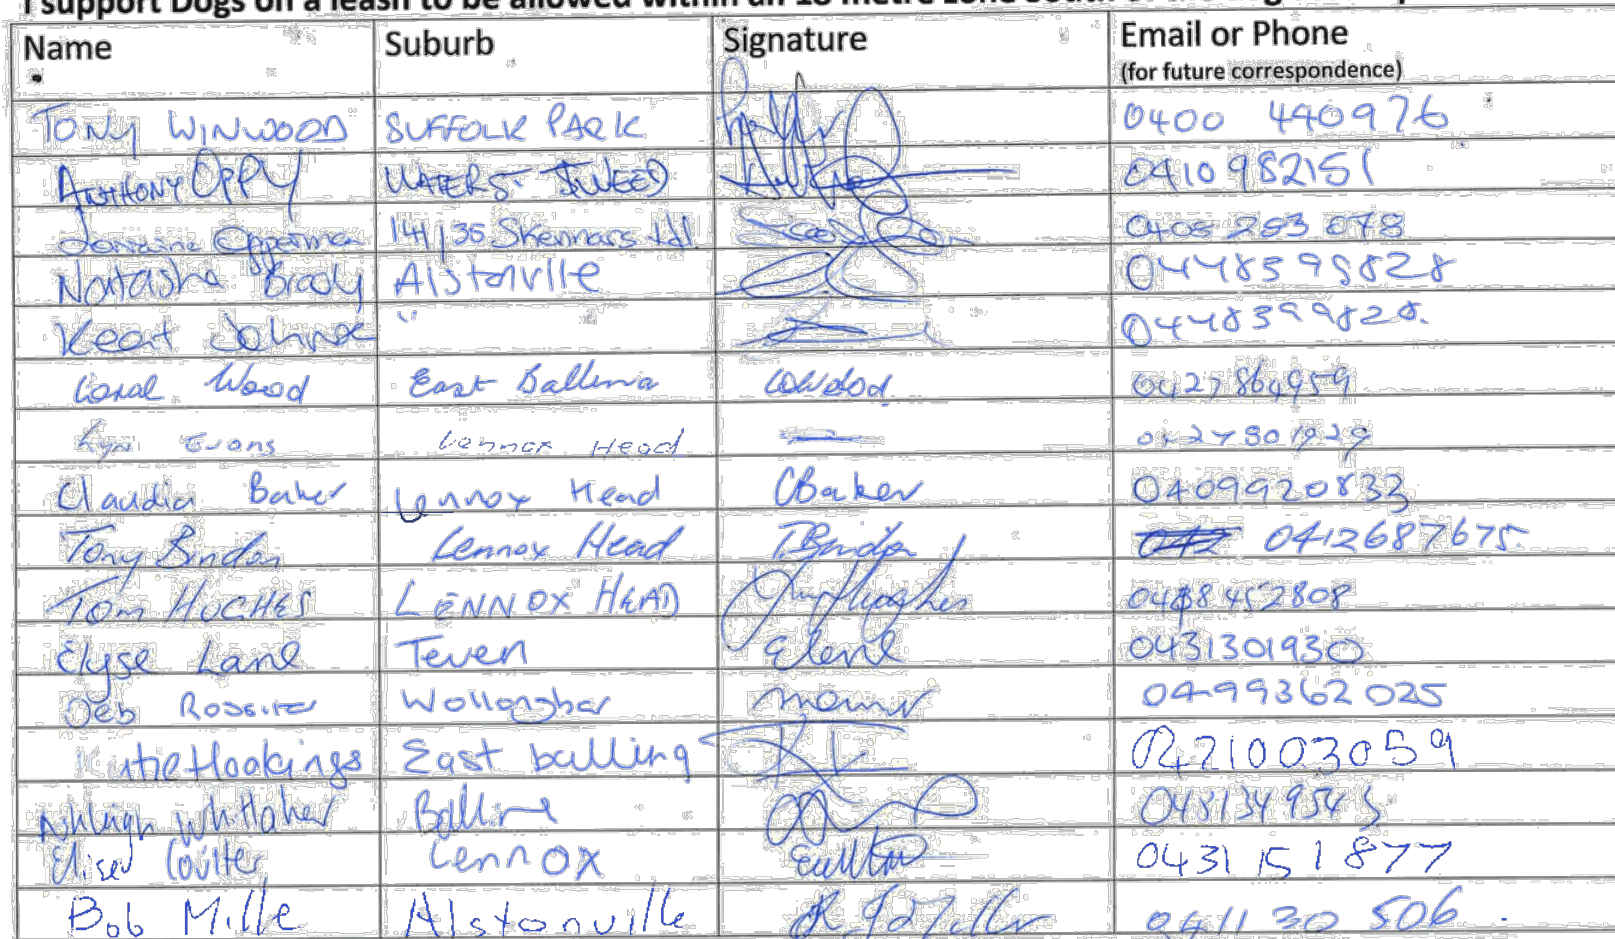 I support Dogs on a leash to be allowed within an 18 metre zone South of the
Name Suburb Signature Email or Phone
(for future correspondence)
TONY WINWOOD SUFFOLK PARK 0400 440976
ANTHONY OPPY WATERS. TWEED 0410982151
Lorraine Opperman 141/35 Skennars Hd. 0405 253 078
Natasha Brady Alstonville 0448399828
Keat " 0448399828.
Coral Wood East Ballina CWood 0427864959
Lyn Evans Lennox Head 0427801929
Claudia Baker Lennox Head CBaker 0409920833
Tony Bindon Lennox Head TBindon 0412687675
Tom HUGHES LENNOX HEAD 0488452808
Elyse Lane Teven Elane 0431301930
Deb Rossiter Wollongbar 0499362025
Hookings East balling 0421003059
Ashleigh Whittaker Ballina
Coulter Lennox 0431151877
Bob Mille Alstonville 041130506